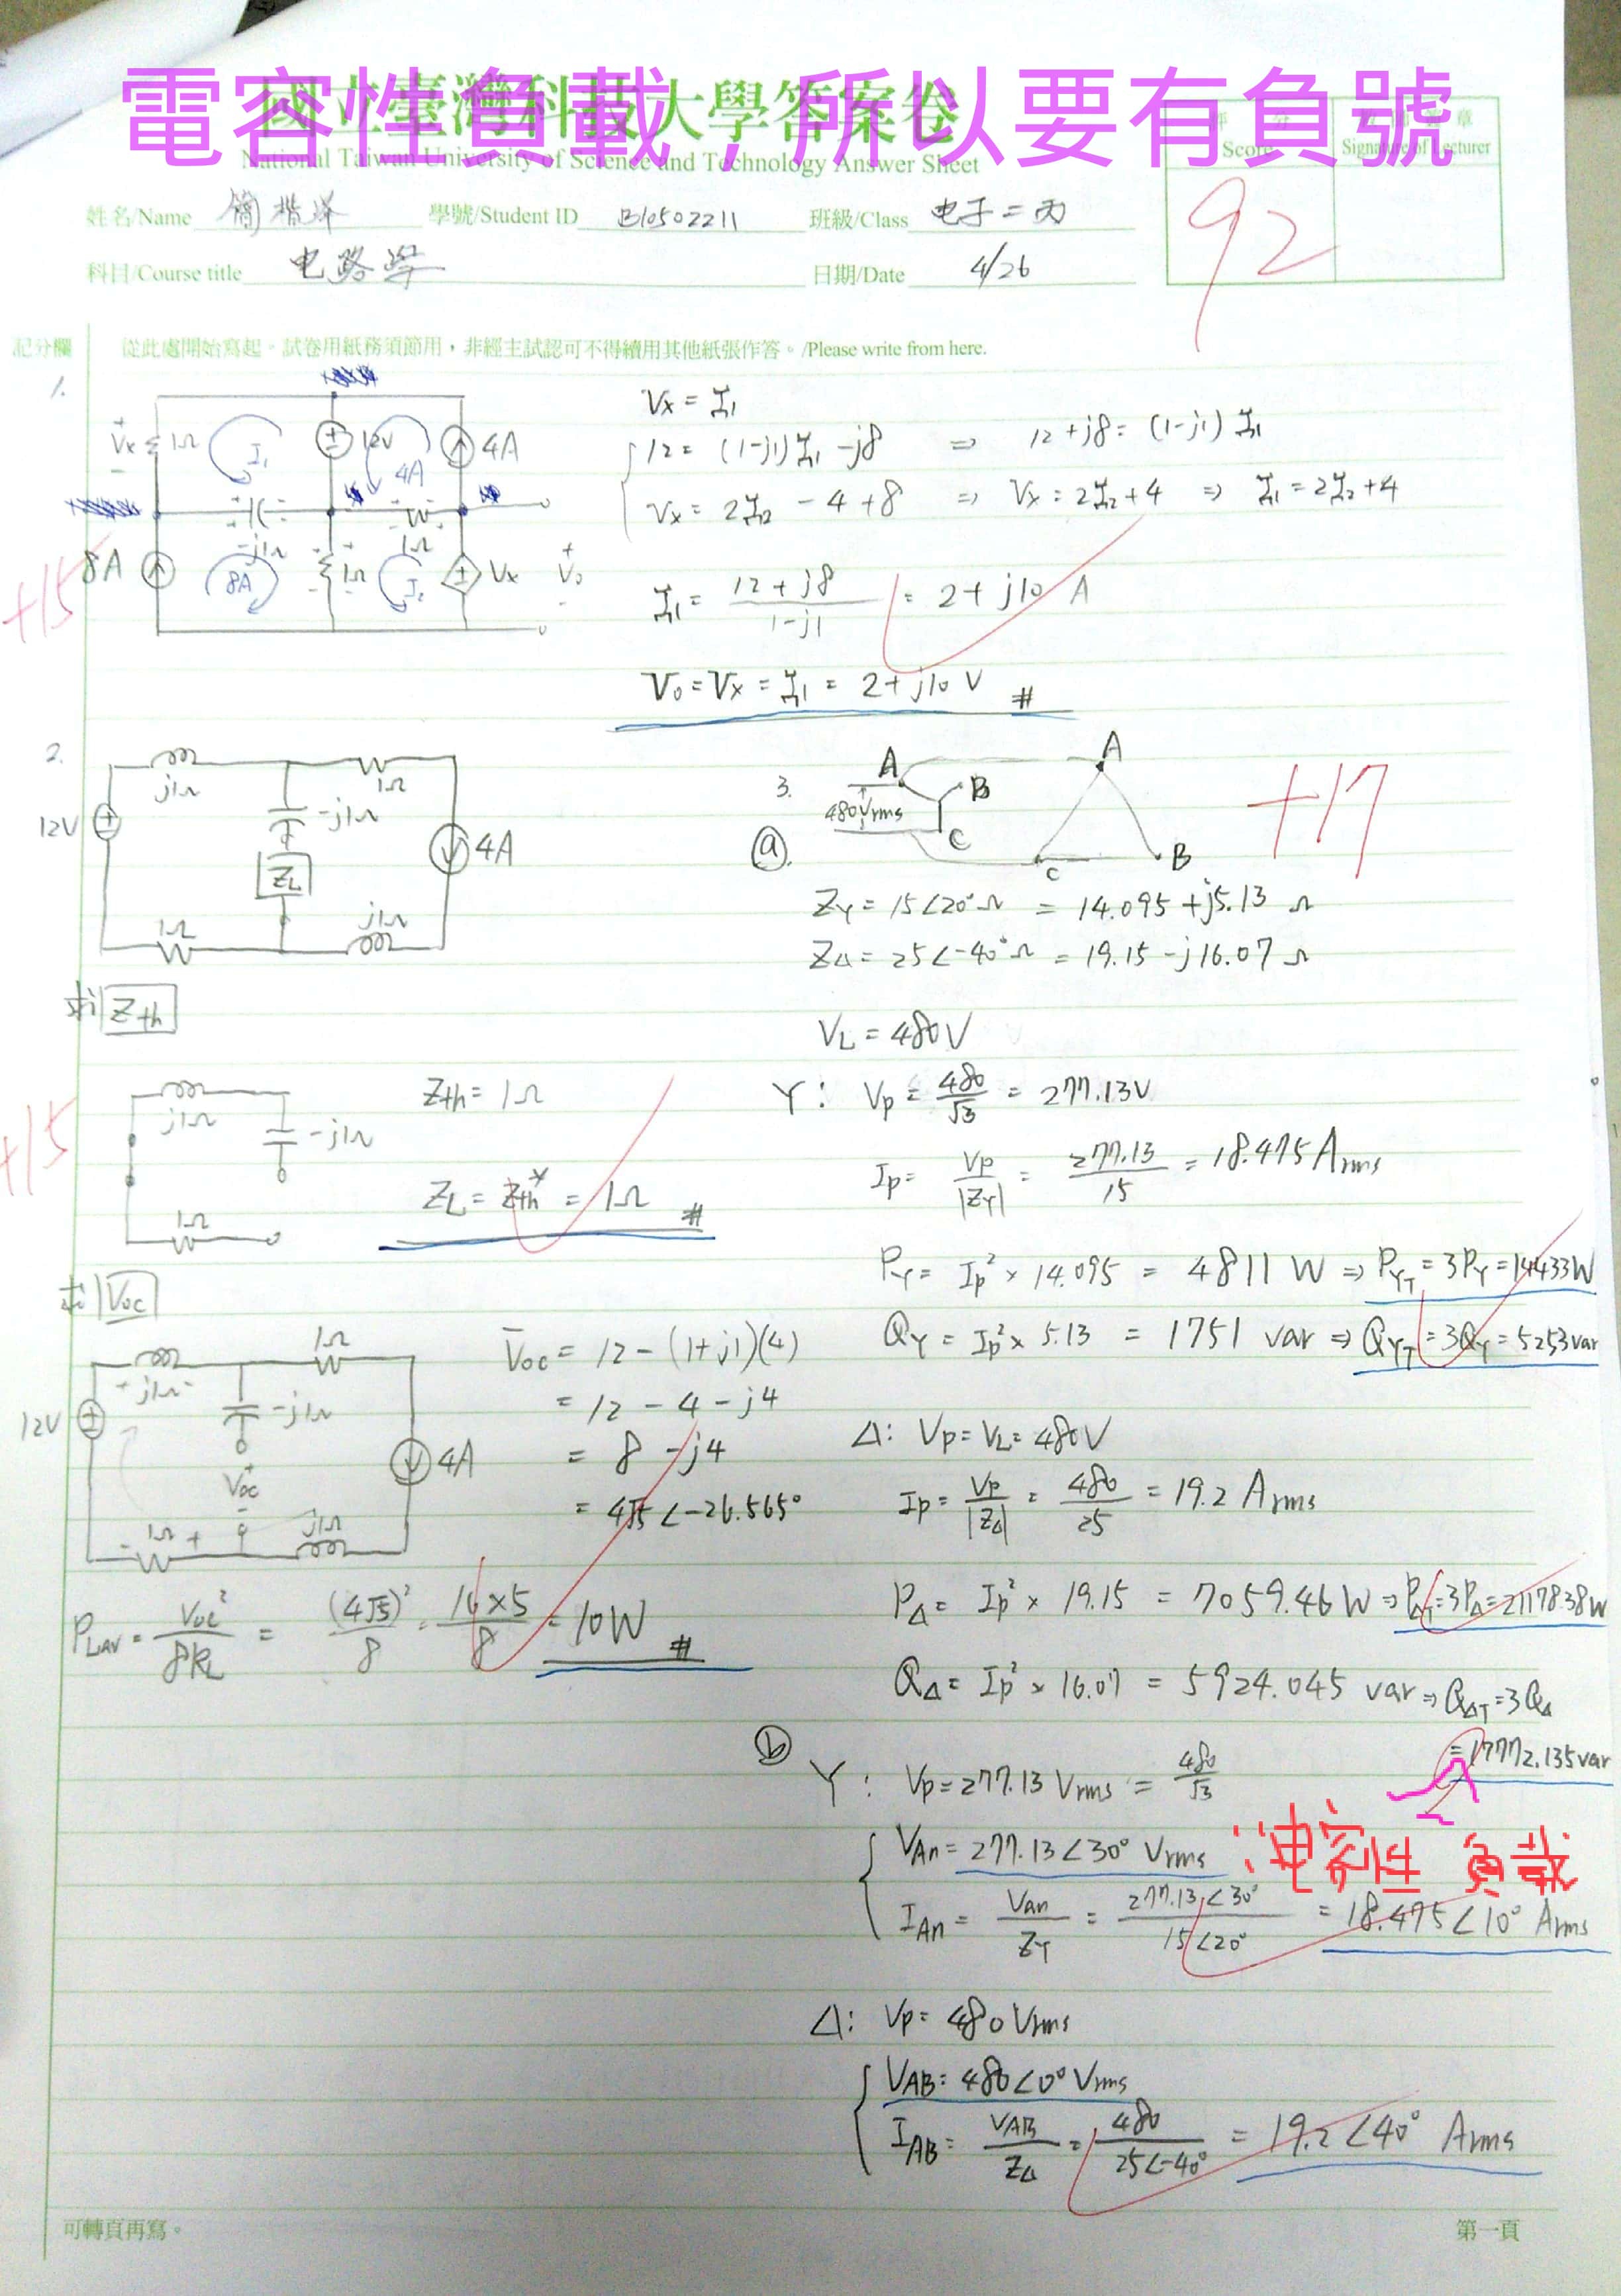 電容性負載，所以要有負號
國立臺灣科技大學答案卷
National Taiwan University of Science and Technology Answer Sheet
評 分
Score
Signature of Lecturer
92
姓名/Name 簡
學號/Student ID B10502211
班級/Class 电子二丙
科目/Course title 电路學
日期/Date 4/26
記分欄
從此處開始寫起。試卷用紙務須節用，非經主試認可不得續用其他紙張作答。/Please write from here.
1.
+15
Vx 1Ω I1 12V 4A 4A
-j1Ω 1Ω
8A 8A 1Ω I2 Vx Vo
Vx = I1
12 = (1-j1)I1 - j8 ⇒ 12+j8 = (1-j1) I1
Vx = 2I2 - 4 + 8 ⇒ Vx = 2I2+4 ⇒ I1 = 2I2+4
I1 = (12+j8)/(1-j1) = 2+j10 A
Vo = Vx = I1 = 2+j10 V #
2.
j1Ω 1Ω
12V -j1Ω 4A
ZL
1Ω j1Ω
求 Zth
+15
j1Ω -j1Ω
1Ω
Zth = 1Ω
ZL = Zth* = 1Ω #
求 Voc
j1Ω 1Ω
12V -j1Ω 4A
Voc
1Ω j1Ω
Voc = 12 - (1+j1)(4)
= 12 - 4 - j4
= 8 - j4
= 4√5 ∠-26.565°
PLAV = Voc²/8RL = (4√5)²/8 = 16×5/8 = 10W #
3.
+17
A B C
480Vrms
A B C
ⓐ
ZY = 15∠20°Ω = 14.095 + j5.13 Ω
ZΔ = 25∠-40°Ω = 19.15 - j16.07 Ω
VL = 480V
Y: Vp = 480/√3 = 277.13V
Ip = Vp/|ZY| = 277.13/15 = 18.475 Arms
PY = Ip² × 14.095 = 4811 W ⇒ PYT = 3PY = 14433W
QY = Ip² × 5.13 = 1751 var ⇒ QYT = 3QY = 5253var
Δ: Vp = VL = 480V
Ip = Vp/|ZΔ| = 480/25 = 19.2 Arms
PΔ = Ip² × 19.15 = 7059.46 W ⇒ PΔT = 3PΔ = 21178.38W
QΔ = Ip² × 16.07 = 5924.045 var ⇒ QΔT = 3QΔ
= 17772.135var
ⓑ
Y: Vp = 277.13 Vrms = 480/√3
VAn = 277.13∠30° Vrms
∵电容性 負載
IAn = Van/ZY = 277.13∠30°/15∠20° = 18.475∠10° Arms
Δ: Vp = 480Vrms
VAB = 480∠0° Vrms
IAB = VAB/ZΔ = 480/25∠-40° = 19.2∠40° Arms
可轉頁再寫。
第一頁